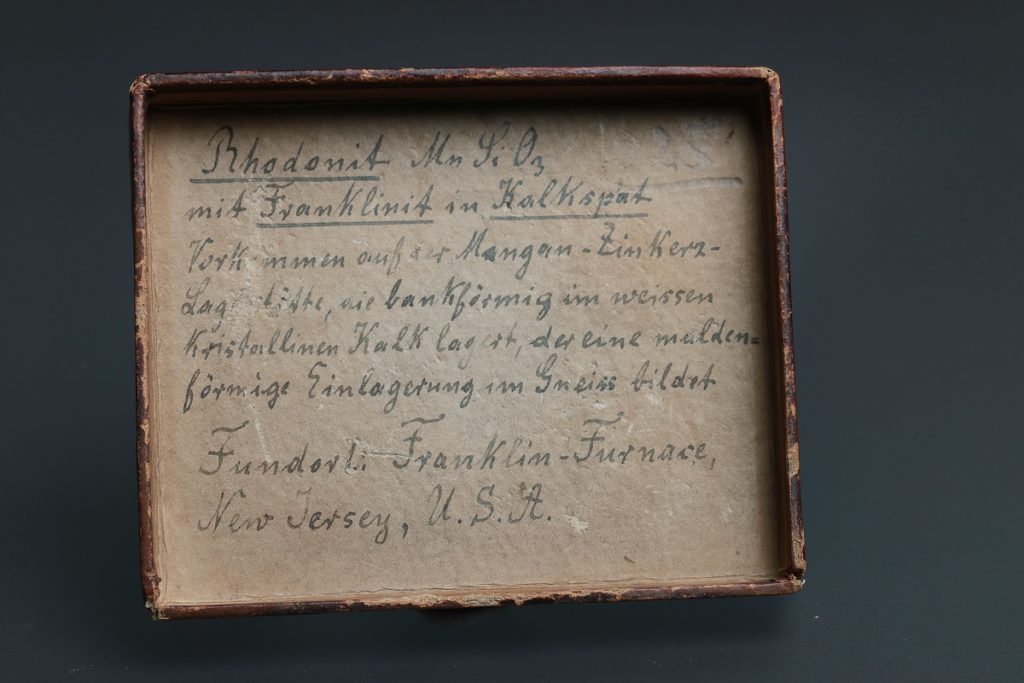 Rhodonit Mn Si O3
mit Franklinit in Kalkspat
Vorkommen auf der Mangan-Zinkerz-
Lagerstätte, die bankförmig im weissen
kristallinen Kalk lagert, der eine mulden=
förmige Einlagerung im Gneiss bildet
Fundort: Franklin-Furnace,
New Jersey, U.S.A.